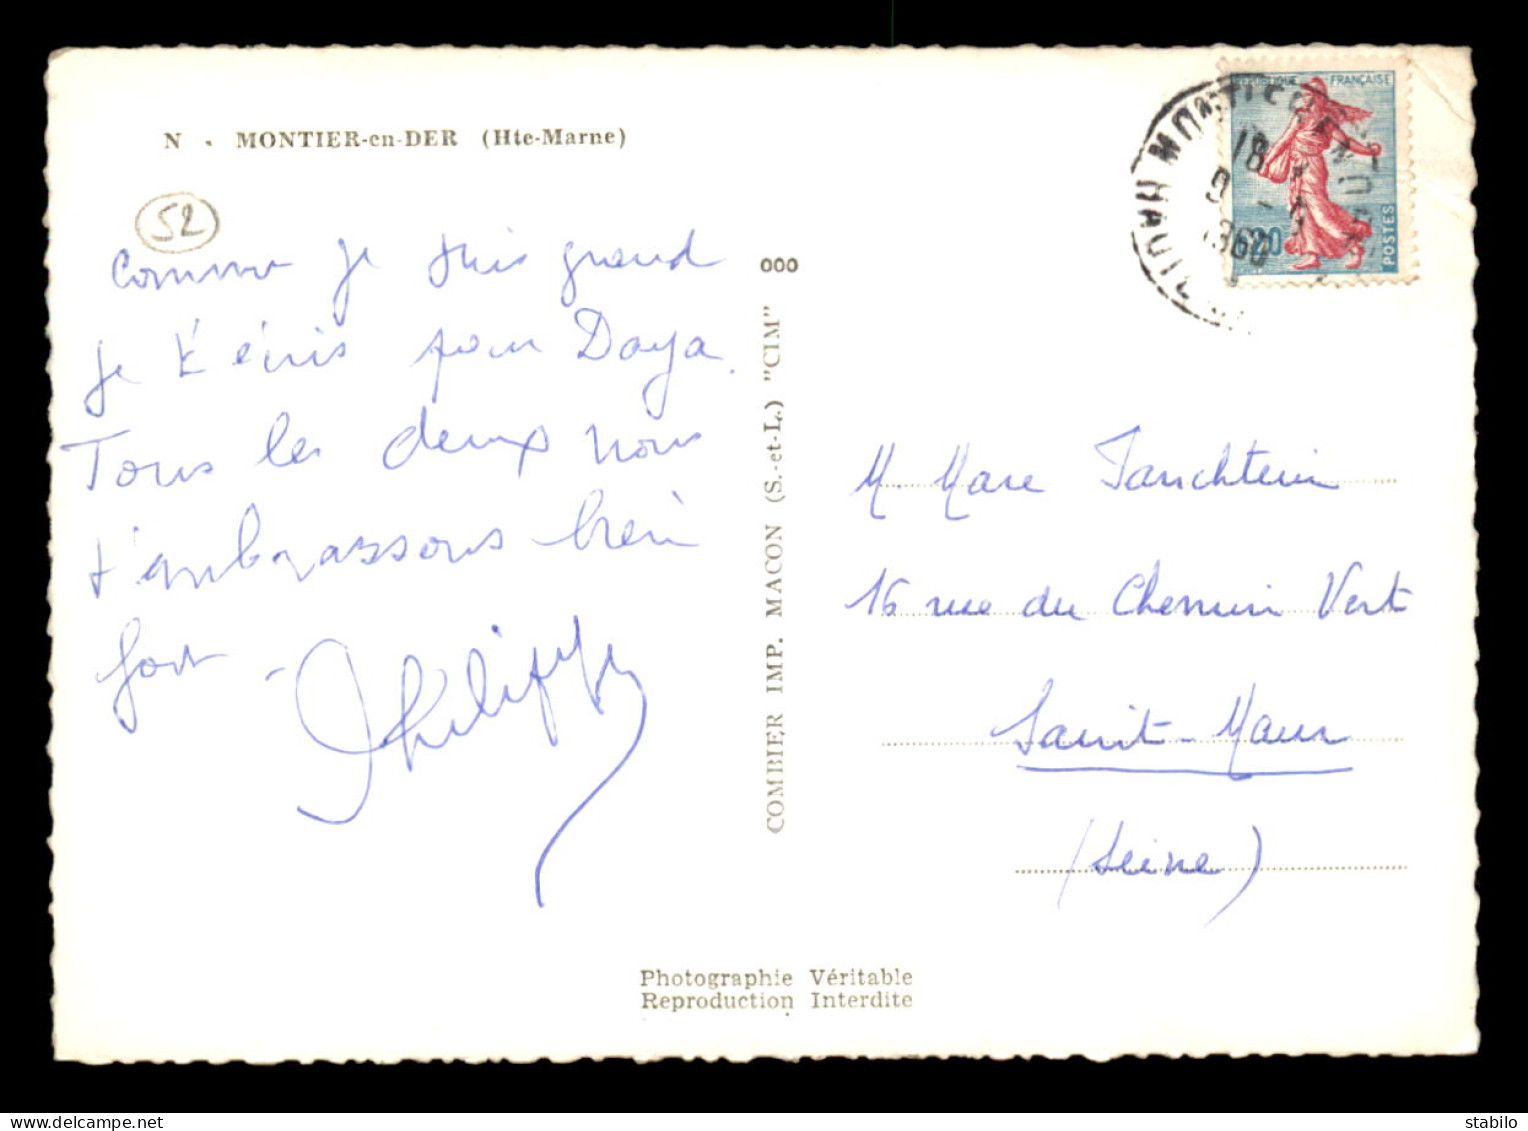 N - MONTIER-en-DER (Hte-Marne)
52
Comme je suis grand
je t'écris pour Daya.
Tous les deux nous
t'embrassons bien
fort -
Philippe
000
COMBIER IMP. MACON (S.-et-L.) "CIM"
RÉPUBLIQUE FRANÇAISE
0,20
POSTES
18
9 -
1960
M. Marc
16 rue du Chemin Vert
Saint-Maur
(Seine)
Photographie Véritable
Reproduction Interdite
delcampe.net
stabilo